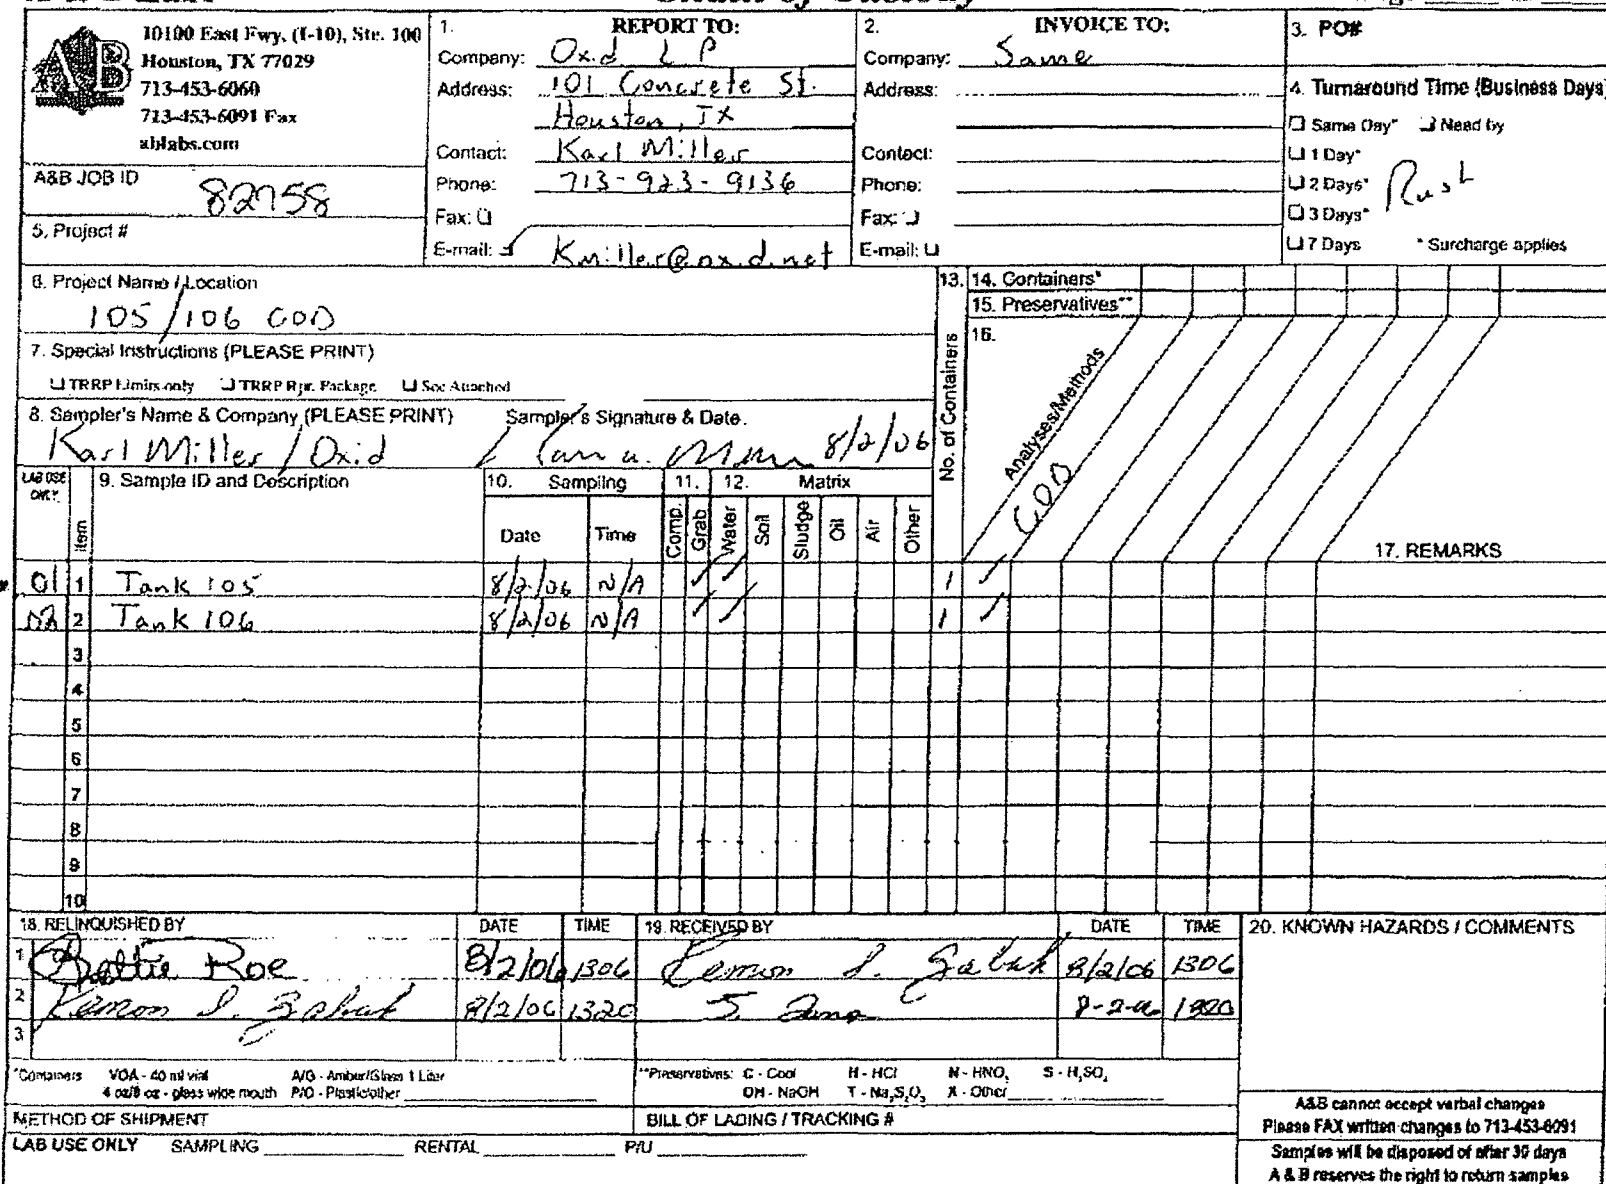 10100 East Fwy, (I-10), Ste. 100
Houston, TX 77029
713-453-6060
713-453-6091 Fax
ablabs.com
A&B JOB ID 82758
5. Project #
1. REPORT TO:
Company: Oxid LP
Address: 101 Concrete St.
Houston, TX
Contact: Karl Miller
Phone: 713-923-9136
Fax:
E-mail: Kmiller@oxid.net
2. INVOICE TO:
Company: Same
Address:
Contact:
Phone:
Fax:
E-mail:
3. PO#
4. Turnaround Time (Business Days)
Same Day* Need by
1 Day*
2 Days* Rush
3 Days*
7 Days * Surcharge applies
6. Project Name / Location
105/106 COD
7. Special Instructions (PLEASE PRINT)
TRRP Limits only TRRP Rpt. Package See Attached
8. Sampler's Name & Company (PLEASE PRINT) Sampler's Signature & Date.
Karl Miller / Oxid 8/2/06
13. No. of Containers
14. Containers*
15. Preservatives**
16. Analyses/Methods
COD
LAB USE ONLY Item 9. Sample ID and Description 10. Sampling 11. 12. Matrix
Date Time Comp. Grab Water Soil Sludge Oil Air Other 17. REMARKS
01 1 Tank 105 8/2/06 N/A ✓ ✓ 1 ✓
02 2 Tank 106 8/2/06 N/A ✓ ✓ 1 ✓
3
4
5
6
7
8
9
10
18. RELINQUISHED BY DATE TIME 19. RECEIVED BY DATE TIME 20. KNOWN HAZARDS / COMMENTS
1 Roe 8/2/06 1306 8/2/06 1306
2 8/2/06 1320 8-2-06 1320
3
*Containers VOA - 40 ml vial A/G - Amber/Glass 1 Liter
4 oz/8 oz - glass wide mouth P/O - Plastic/other
**Preservatives: C - Cool H - HCl N - HNO₃ S - H₂SO₄
OH - NaOH T - Na₂S₂O₃ X - Other
METHOD OF SHIPMENT BILL OF LADING / TRACKING #
LAB USE ONLY SAMPLING RENTAL P/U
A&B cannot accept verbal changes
Please FAX written changes to 713-453-6091
Samples will be disposed of after 30 days
A & B reserves the right to return samples